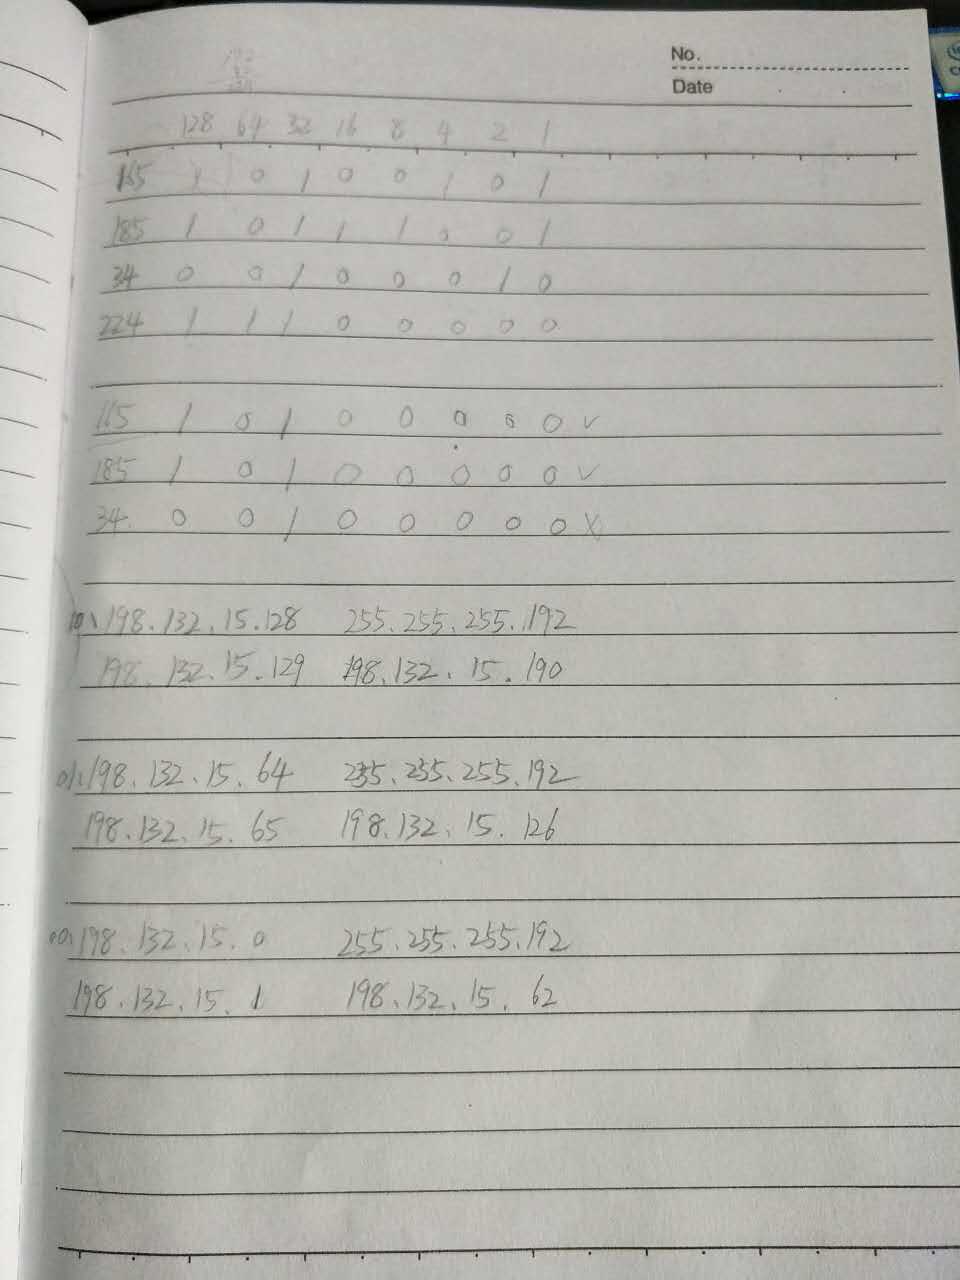 No.
Date
128 64 32 16 8 4 2 1
165 1 0 1 0 0 1 0 1
185 1 0 1 1 1 0 0 1
34 0 0 1 0 0 0 1 0
224 1 1 1 0 0 0 0 0
165 1 0 1 0 0 0 0 0 ✓
185 1 0 1 0 0 0 0 0 ✓
34. 0 0 1 0 0 0 0 0 X
10、198.132.15.128 255.255.255.192
198.132.15.129 198.132.15.190
01、198.132.15.64 255.255.255.192
198.132.15.65 198.132.15.126
00、198.132.15.0 255.255.255.192
198.132.15.1 198.132.15.62